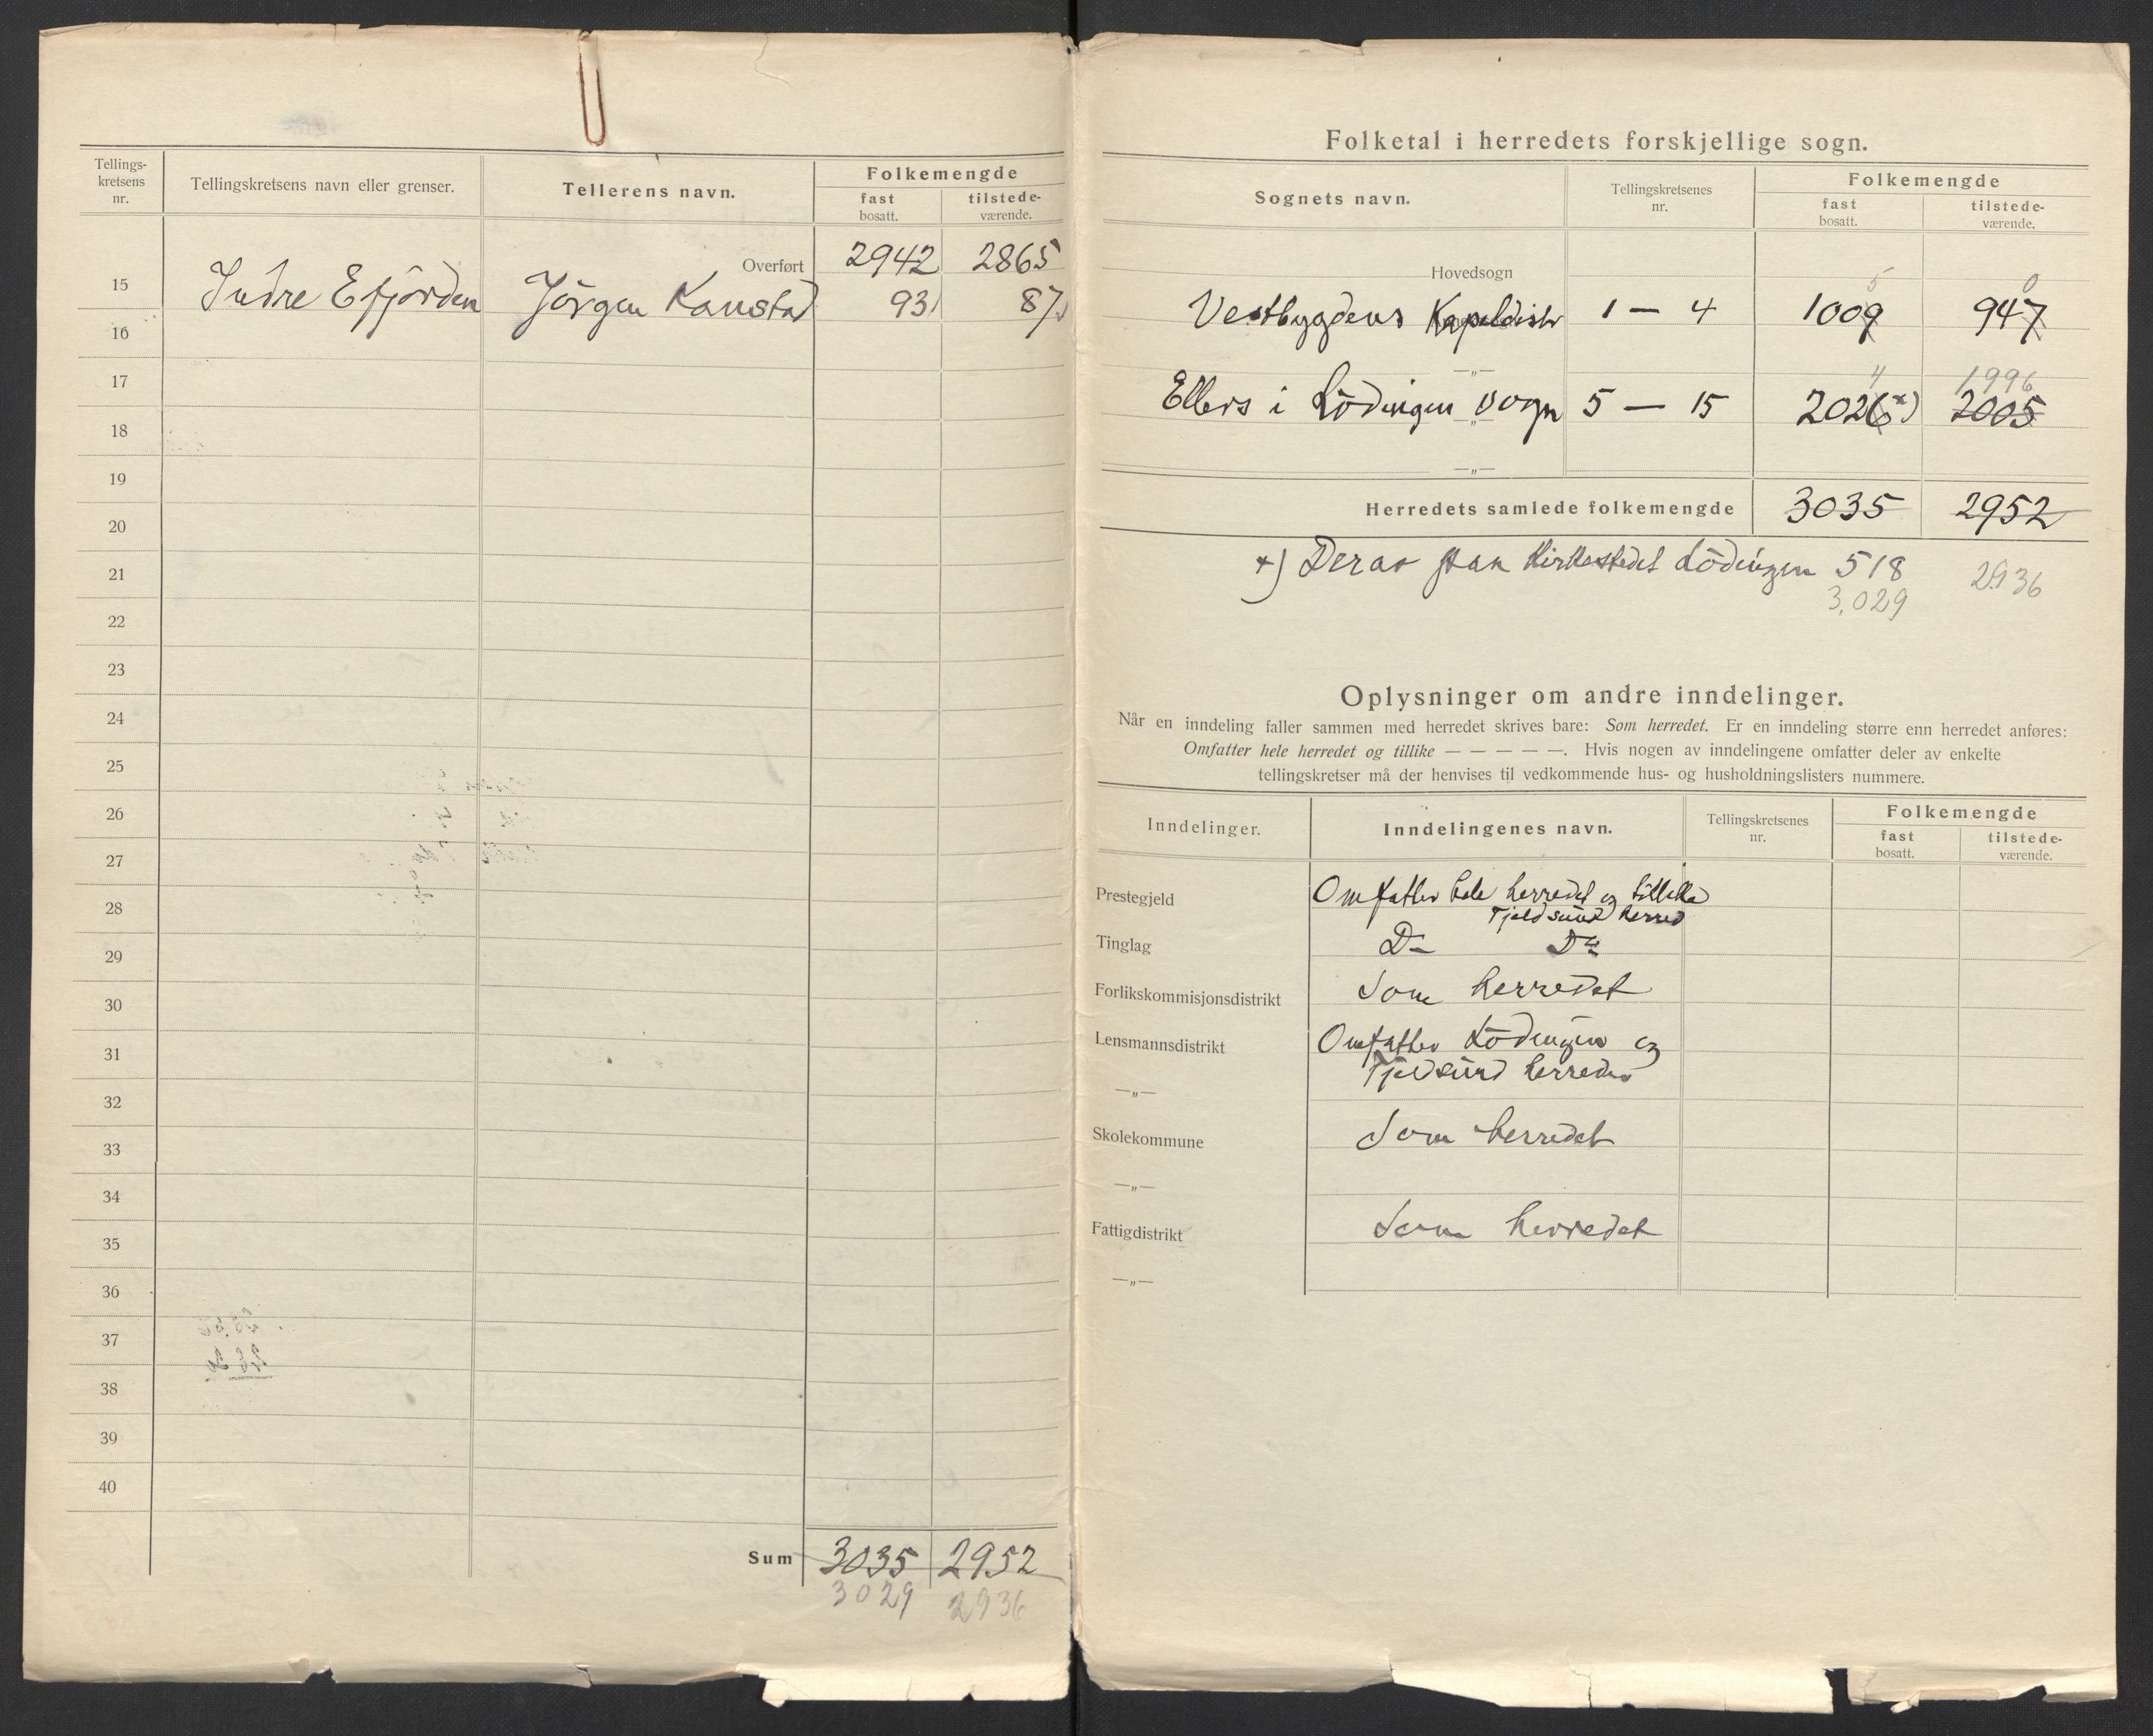 Tellings-
kretsens
nr.
Tellingskretsens navn eller grenser.
Tellerens navn.
Folkemengde
fast
bosatt.
tilstede-
værende.
Overført 2942 2865
15 Indre Efjorden Jörgen Kanstad 93 87
16
17
18
19
20
21
22
23
24
25
26
27
28
29
30
31
32
33
34
35
36
37
38
39
40
Sum 3035 2952
3029 2936
Folketal i herredets forskjellige sogn.
Sognets navn.
Tellingskretsenes
nr.
Folkemengde
fast
bosatt.
tilstede-
værende.
Hovedsogn
5 0
Vestbygdens Kapeldistr 1 — 4 1009 947
—„—
4 1996
Ellers i Lödingen sogn 5 — 15 2026*) 2005
—„—
—„—
Herredets samlede folkemengde 3035 2952
*) Derav Kirkestedet Lödingen 518
3,029 2936
Oplysninger om andre inndelinger.
Når en inndeling faller sammen med herredet skrives bare: Som herredet. Er en inndeling større enn herredet anføres:
Omfatter hele herredet og tillike — — — — —. Hvis nogen av inndelingene omfatter deler av enkelte
tellingskretser må der henvises til vedkommende hus- og husholdningslisters nummere.
Inndelinger.
Inndelingenes navn.
Tellingskretsenes
nr.
Folkemengde
fast
bosatt.
tilstede-
værende.
Prestegjeld Omfatter hele herredet og tillike
Tjeldsund herred
Tinglag Do Do
Forlikskommisjonsdistrikt Som herredet
Lensmannsdistrikt Omfatter Lödingen og
Tjeldsund herreder
—„—
Skolekommune Som herredet
—„—
Fattigdistrikt Som herredet
—„—